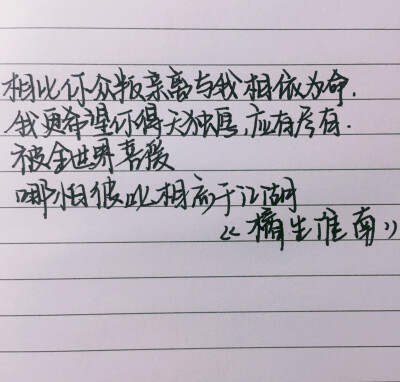 相比你众叛亲离与我相依为命.
我更希望你得天独厚,应有尽有.
被全世界喜爱
哪怕彼此相忘于江湖
《橘生淮南》